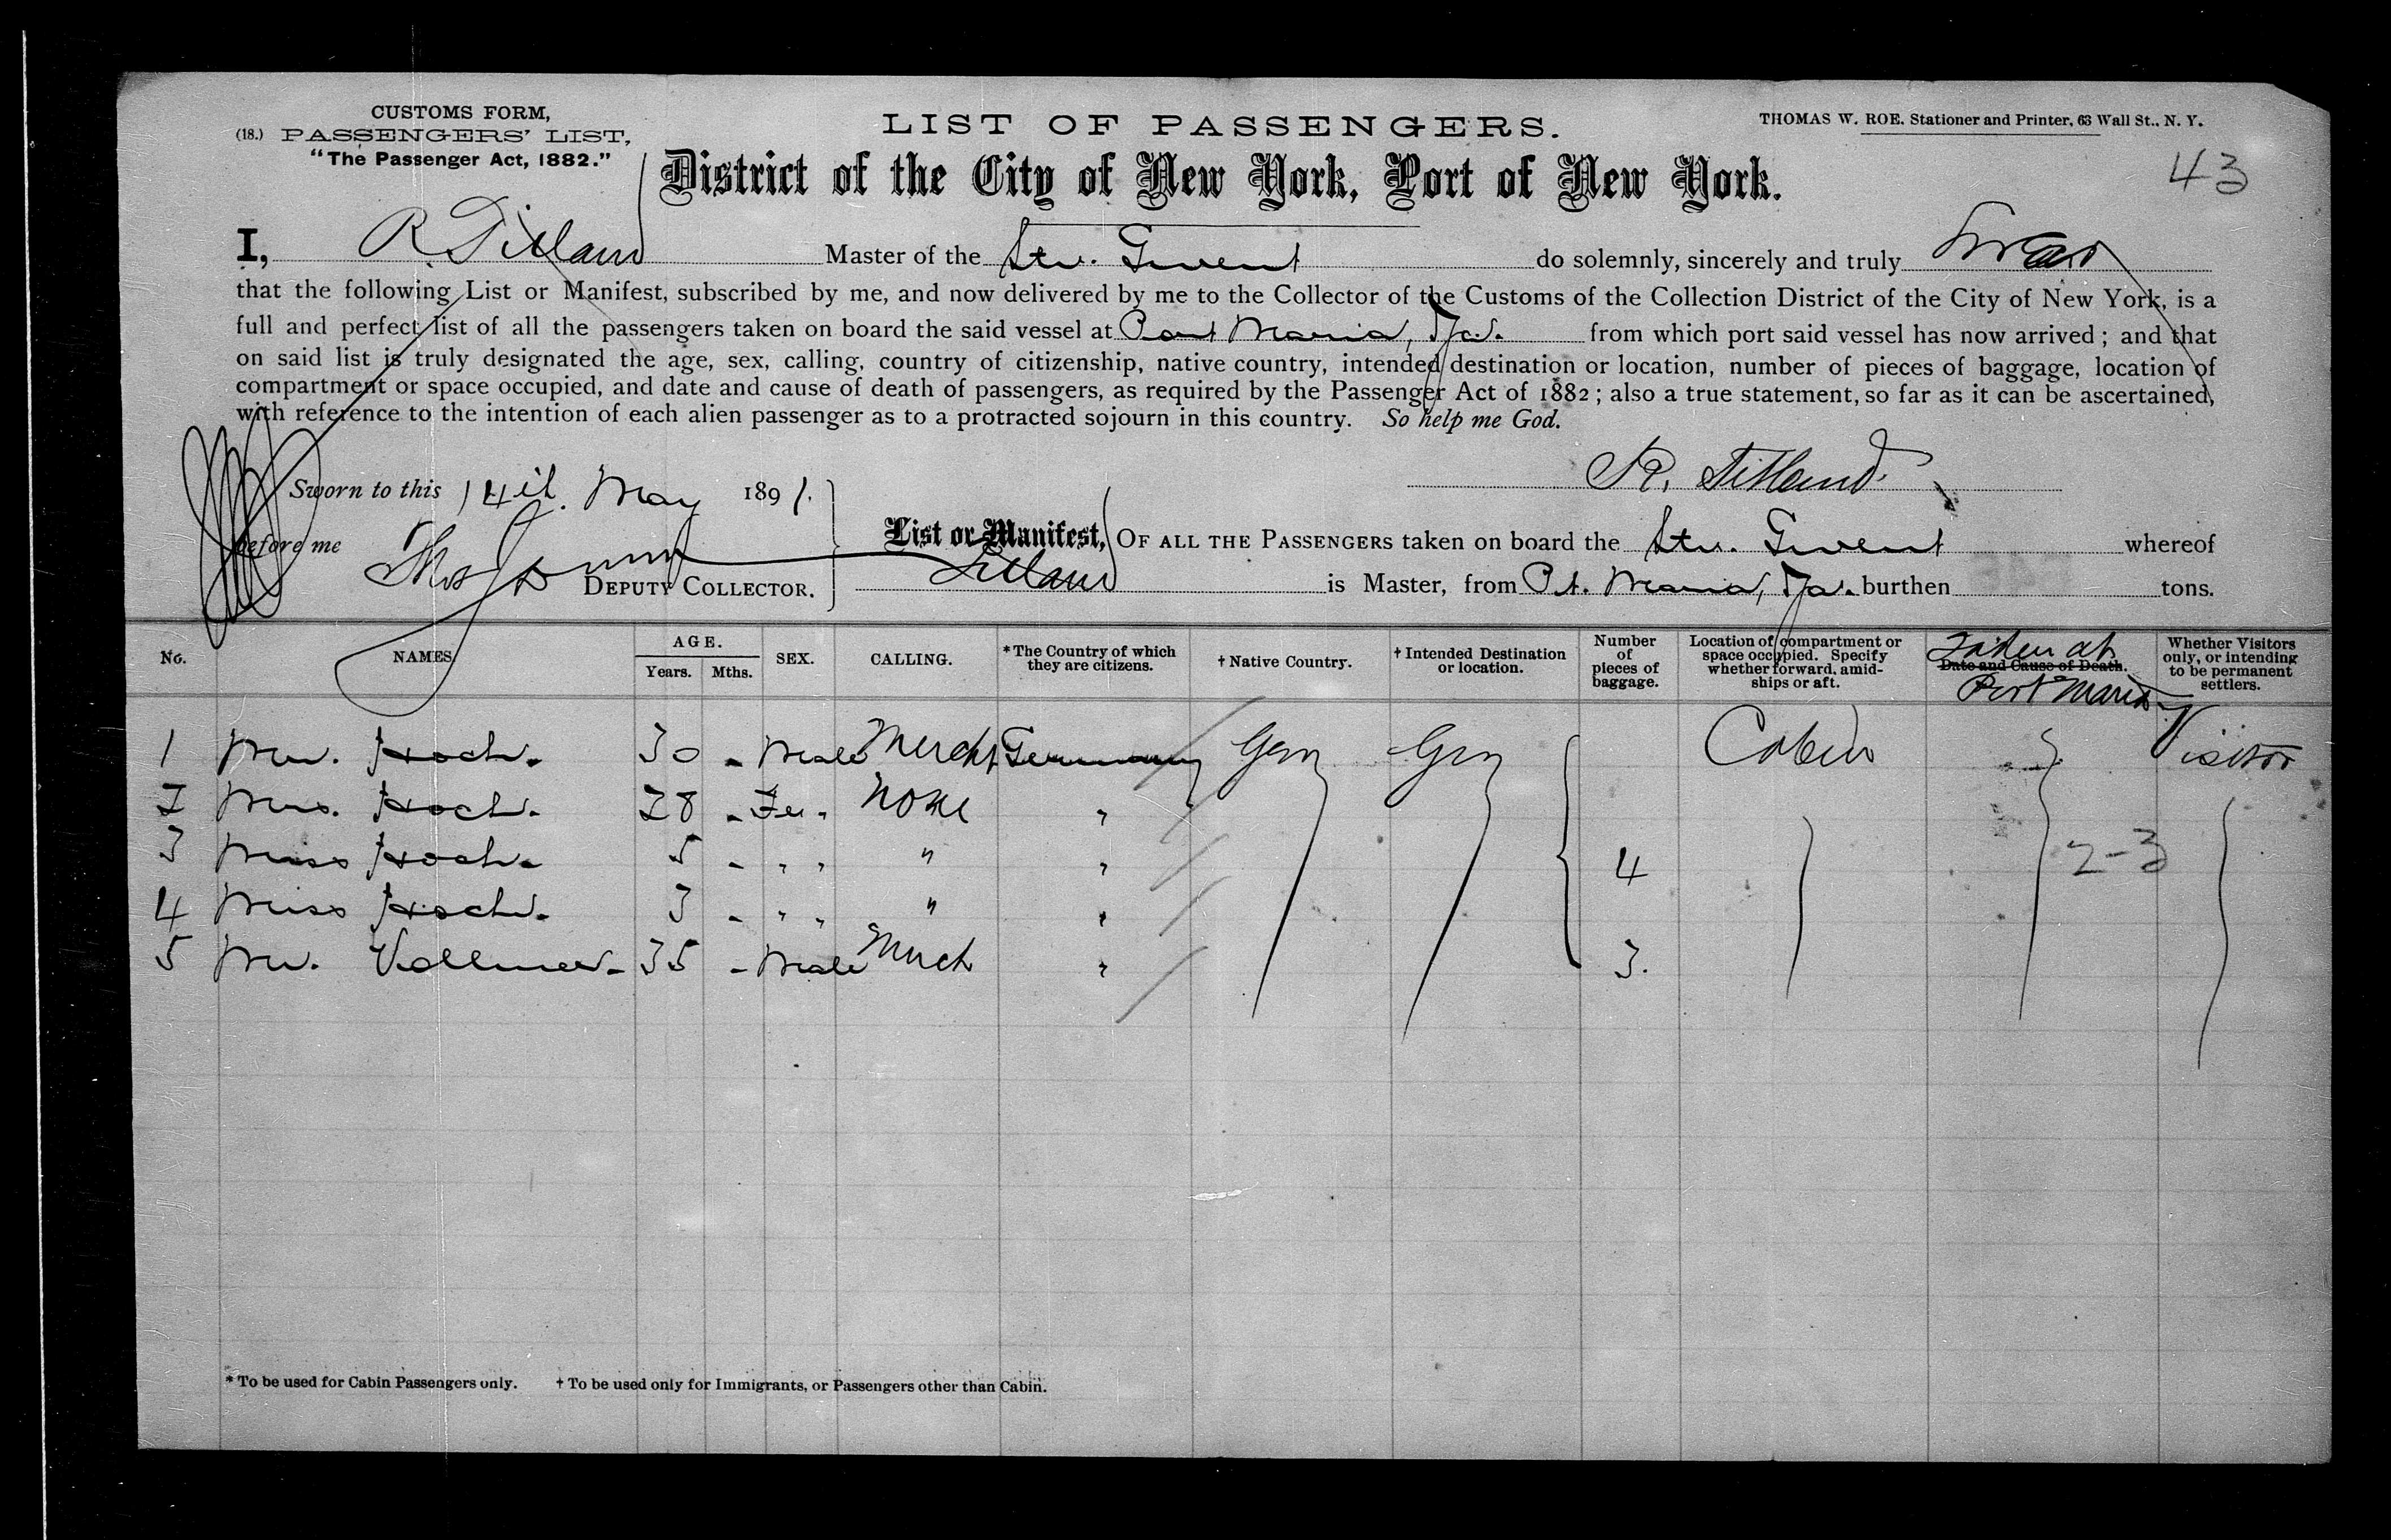 CUSTOMS FORM,
(18.) PASSENGERS' LIST,
"The Passenger Act, 1882."
LIST OF PASSENGERS.
THOMAS W. ROE. Stationer and Printer, 63 Wall St.. N. Y.
District of the City of New York, Port of New York.
43
I, R Master of the Str. Gwent do solemnly, sincerely and truly Swear
that the following List or Manifest, subscribed by me, and now delivered by me to the Collector of the Customs of the Collection District of the City of New York, is a
full and perfect list of all the passengers taken on board the said vessel at Port Maria, Ja. from which port said vessel has now arrived; and that
on said list is truly designated the age, sex, calling, country of citizenship, native country, intended destination or location, number of pieces of baggage, location of
compartment or space occupied, and date and cause of death of passengers, as required by the Passenger Act of 1882; also a true statement, so far as it can be ascertained,
with reference to the intention of each alien passenger as to a protracted sojourn in this country. So help me God.
R.
Sworn to this 14th. May 1891.
before me Thos
DEPUTY COLLECTOR.
List or Manifest, OF ALL THE PASSENGERS taken on board the Str. Gwent whereof
is Master, from Pt. Maria, Ja. burthen tons.
No. NAMES. AGE. Years. Mths. SEX. CALLING. *The Country of which they are citizens. † Native Country. † Intended Destination or location. Number of pieces of baggage. Location of compartment or space occupied. Specify whether forward, amidships or aft. Date and Cause of Death. Taken at Port Maria Whether Visitors only, or intending to be permanent settlers.
1 Mr. Hoch. 30 - Male Mercht Germany Gery Gery Cabin Visitor
2 Mrs. Hoch. 28 - Fe. None "
3 Miss Hoch. 5 - " " " " 4 2-3
4 Miss Hoch. 3 - " " " "
5 Mr. Vollmer. 35 - Male Merch " 3.
* To be used for Cabin Passengers only. † To be used only for Immigrants, or Passengers other than Cabin.